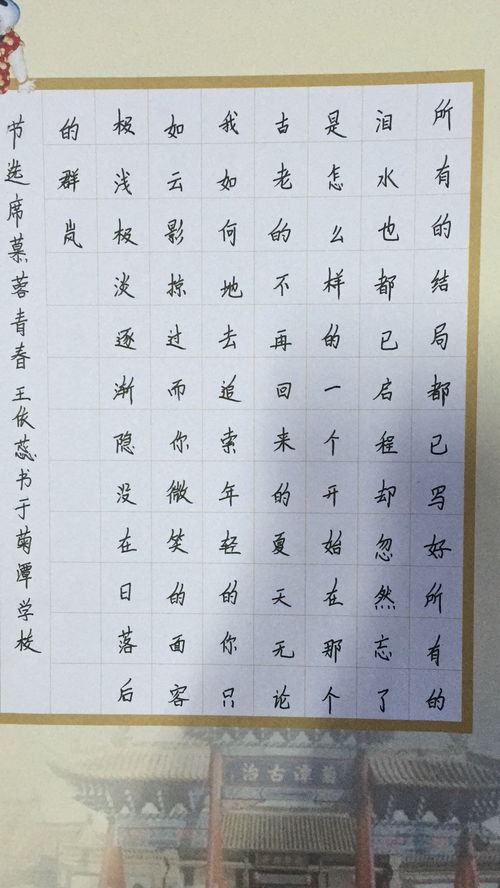 所有的结局都已写好所有的
泪水也都已启程却忽然忘了
是怎么样的一个开始在那个
古老的不再回来的夏天无论
我如何地去追索年轻的你只
如云影掠过而你微笑的面容
极浅极淡逐渐隐没在日落后
的群岚
节选席慕蓉青春王依蕊书于菊潭学校
菊潭古治